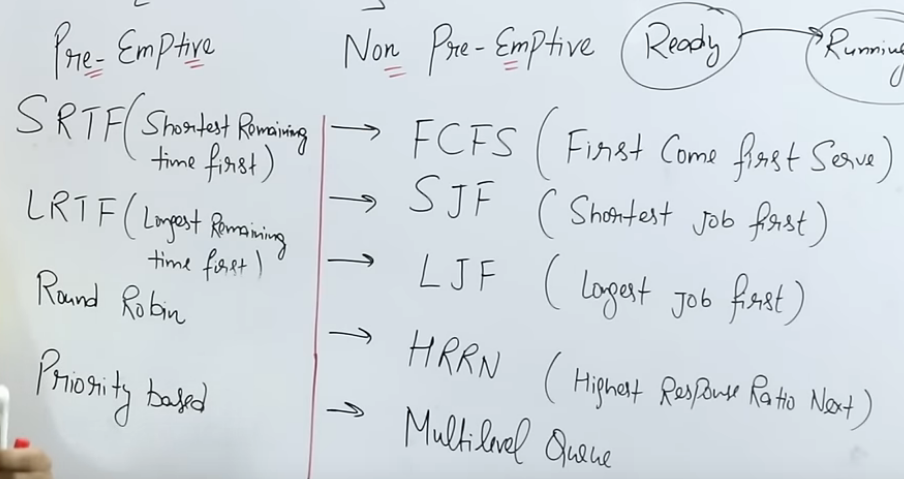 Pre-Emptive
SRTF (Shortest Remaining
time first)
LRTF (Longest Remaining
time first)
Round Robin
Priority based
Non Pre-Emptive
→ FCFS (First Come first Serve)
→ SJF (Shortest Job first)
→ LJF (Longest Job first)
→ HRRN (Highest Response Ratio Next)
→ Multilevel Queue
Ready → Running